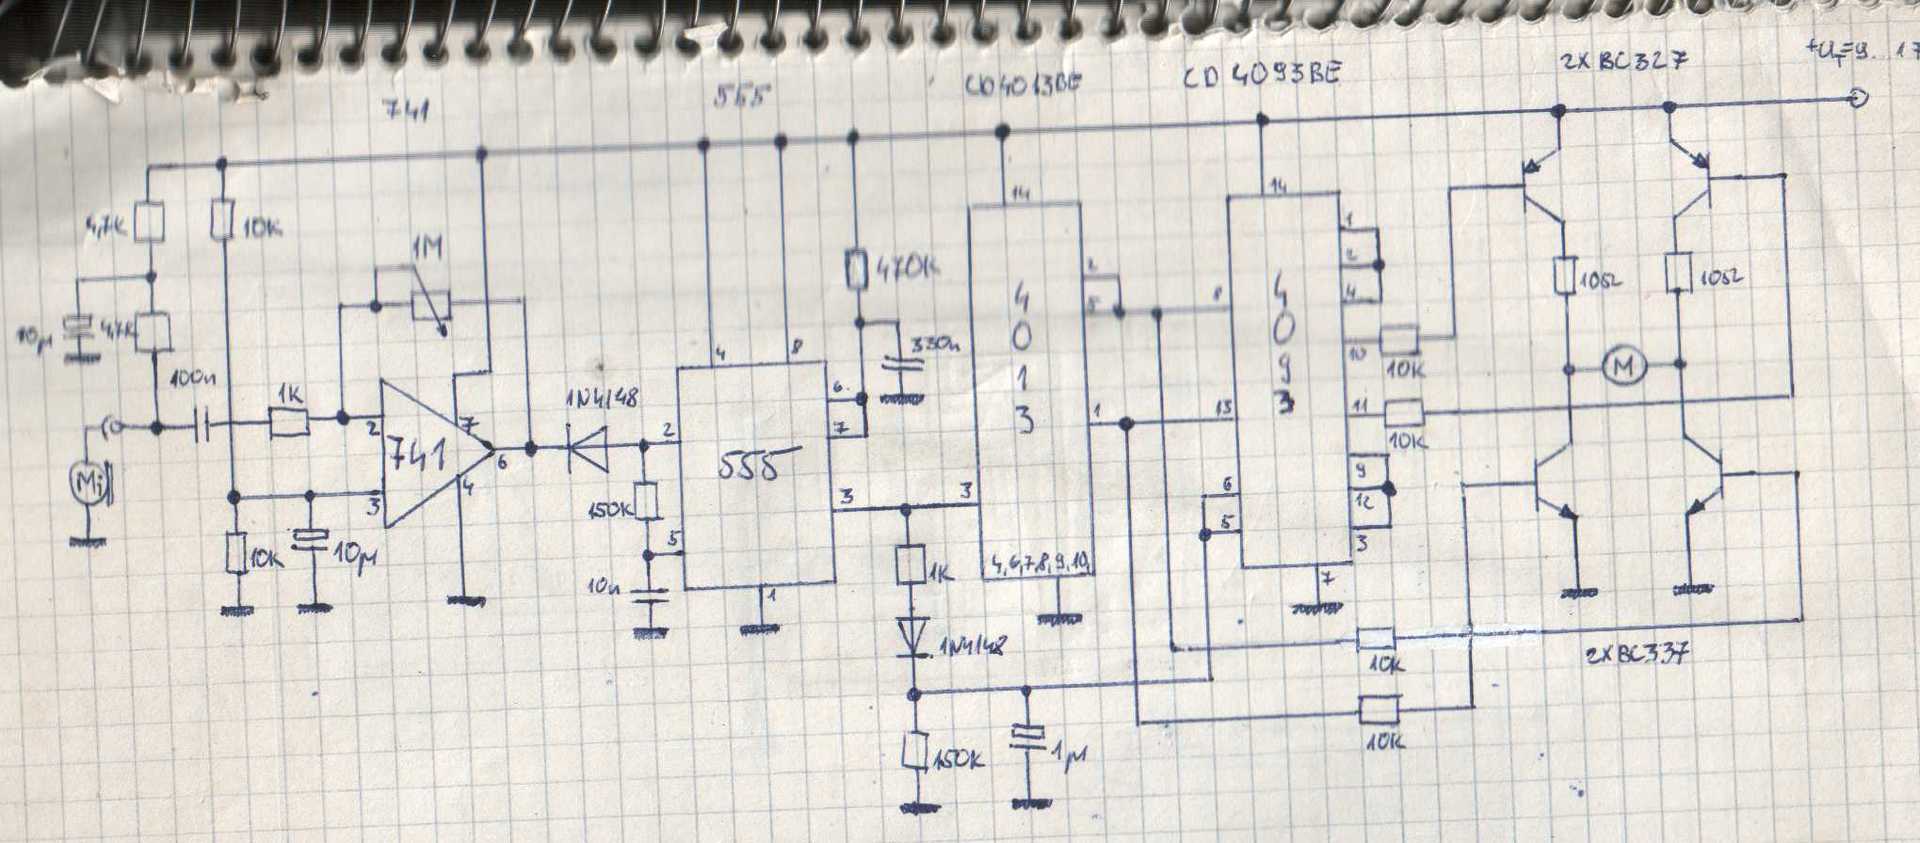 741
555
CD4013BE
CD 4093BE
2XBC327
4,7K
10K
1M
10µ
4,7K
100n
1K
Mi
2
3
741
7
4
6
10K
10µ
1N4148
150K
10n
2
5
4
8
555
6
7
3
1
470K
330n
1K
1N4148
150K
1µ
14
4
0
1
3
2
5
1
3
4,6,7,8,9,10
14
8
13
6
5
4
0
9
3
1
2
4
10
11
9
12
3
7
10K
10K
10K
10K
10Ω
10Ω
M
2XBC337